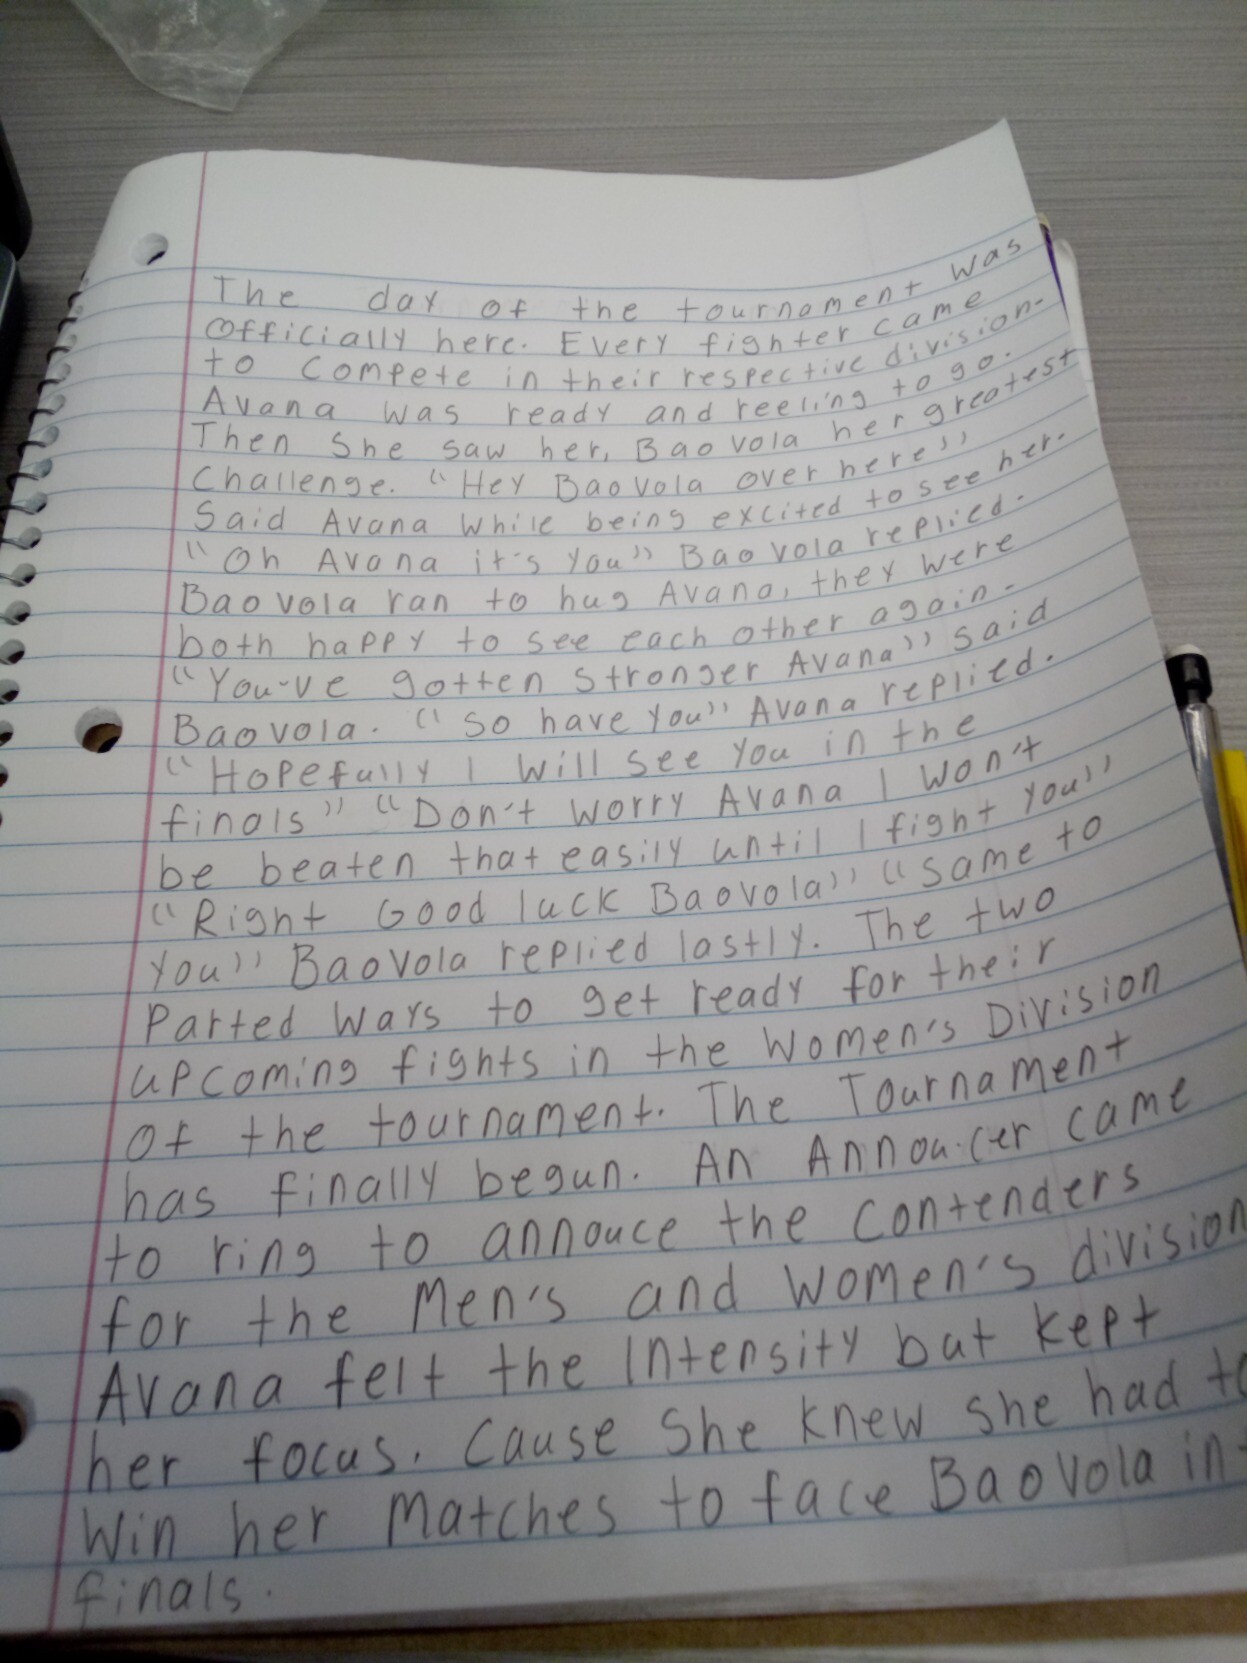 The day of the tournament was
Officially here. Every fighter came
to compete in their respective division.
Avana was ready and reeling to go.
Then She saw her, Baovola her greatest
Challenge. "Hey Baovola over here"
Said Avana while being excited to see her.
"Oh Avana it's you" Baovola replied.
Baovola ran to hug Avana, they were
both happy to see each other again.
"You've gotten stronger Avana" said
Baovola. "So have you" Avana replied.
"Hopefully I will see you in the
finals" "Don't worry Avana I won't
be beaten that easily until I fight you"
"Right Good luck Baovola" "Same to
you" Baovola replied lastly. The two
Parted ways to get ready for their
upcoming fights in the Women's Division
Of the tournament. The Tournament
has finally begun. An Annoucer came
to ring to annouce the Contenders
for the Men's and Women's division
Avana felt the Intensity but kept
her focus. Cause She knew she had to
Win her Matches to face Baovola in
finals.